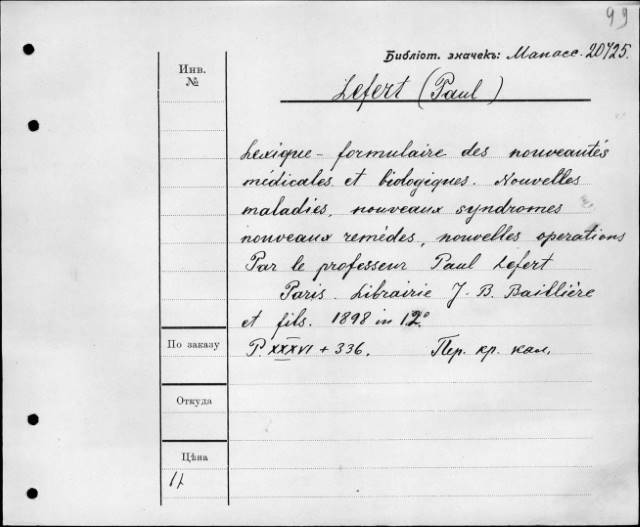 99
Библіот. значекъ: Манасс. 20725.
Инв.
№
Lefert (Paul)
Lexique-formulaire des nouveautés
médicales et biologiques. Nouvelles
maladies, nouveaux syndromes
nouveaux remédes, nouvelles operations
Par le professeur Paul Lefert
Paris. Librairie J. B. Baillière
et fils. 1898 in 12º
По заказу
P. XXXVI + 336. Пер. кр. кал.
Откуда
Цѣна